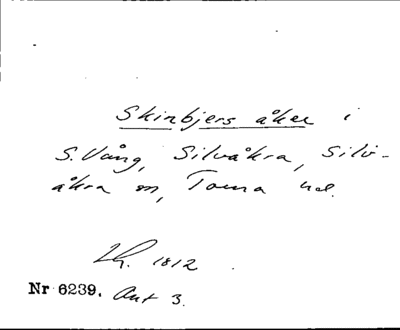 Skinbjers åker i
S. Vång, Silvåkra, Silv-
åkra sn, Torna hd.
Lh. 1812
Nr 6239. Akt 3.